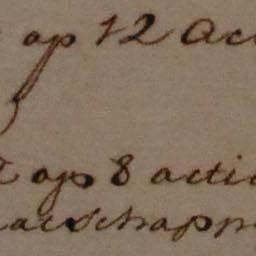 op 12 Ac
op 8 acti
aatschapp